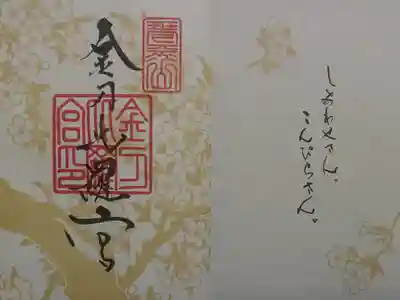 しあわせさん。
こんぴらさん。
金刀比羅宮
金刀
比羅
宮印